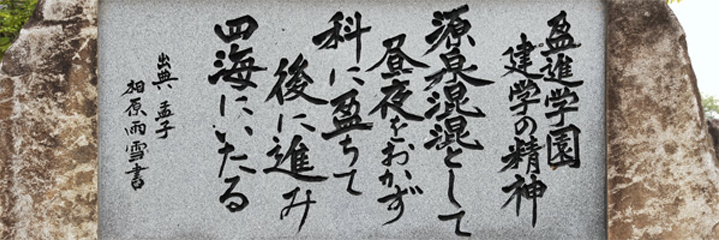 盈進学園
建学の精神
源泉混混として
昼夜をおかず
科に盈ちて
後に進み
四海にいたる
出典 孟子
相原雨雪書